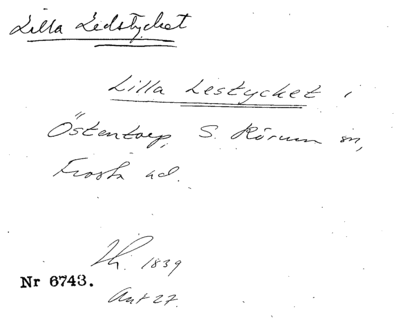 Lilla Ledstycket
Lilla Lestycket i
Östentorp, S. Rörum sn,
Frosta hd.
Th. 1839
Nr 6743.
Ant 27.